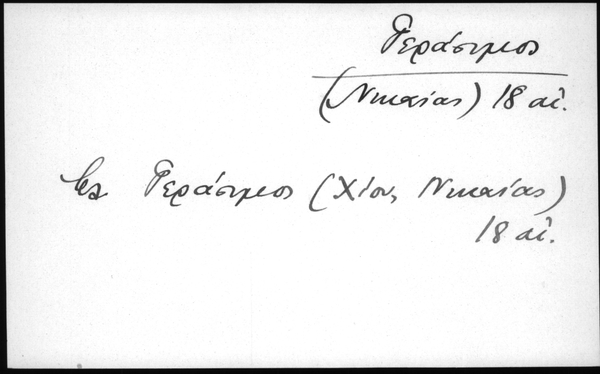 Γεράσιμος
(Νικαίας) 18 αἰ.
Γεράσιμος (Χίου, Νικαίας)
18 αἰ.